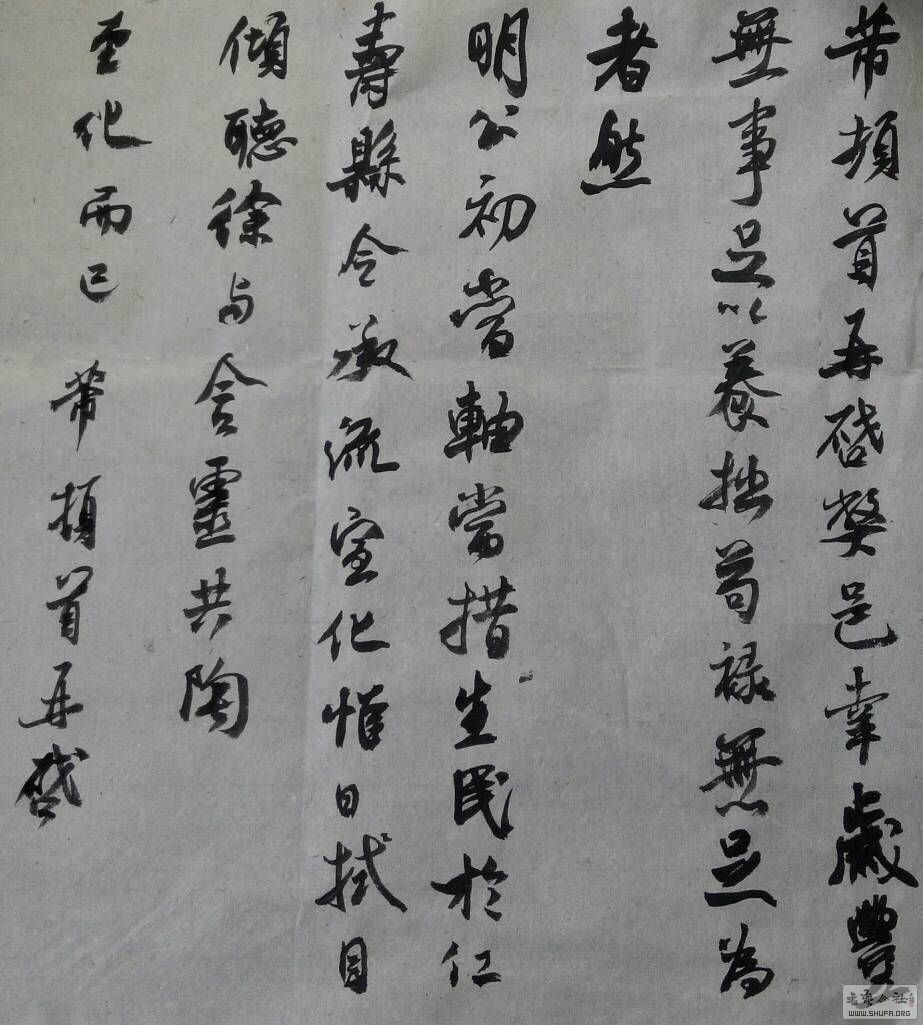 芾頓首再啓弊邑幸歲豐
無事足以養拙苟祿無足為
者然
明公初當軸當措生民於仁
壽縣令承流宣化惟日拭目
傾聽徐與含靈共陶
至化而已芾頓首再啓
WWW.SHUFA.ORG